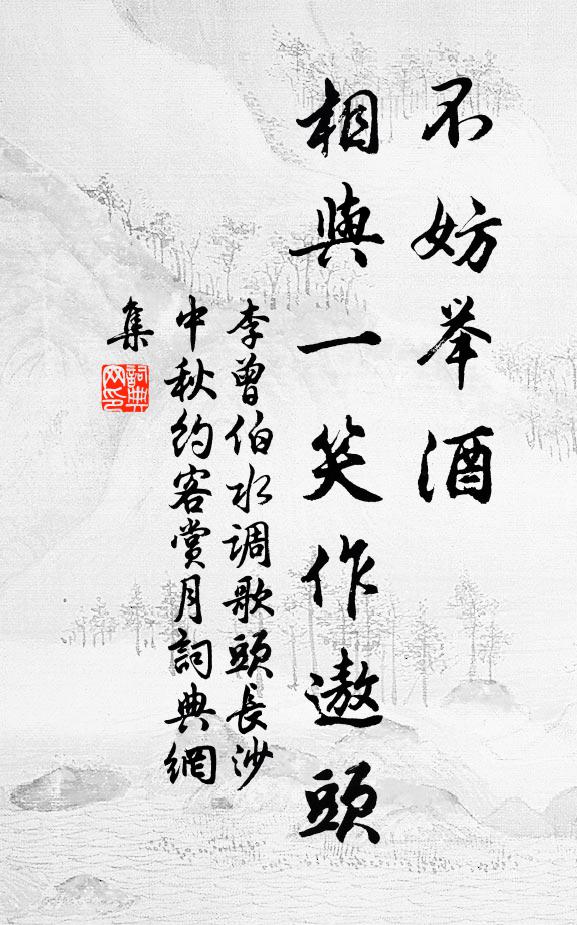 不妨举酒
相與一笑作遨頭
李曾伯水调歌頭長沙
中秋约客賞月詞典網
集
詞典
网印